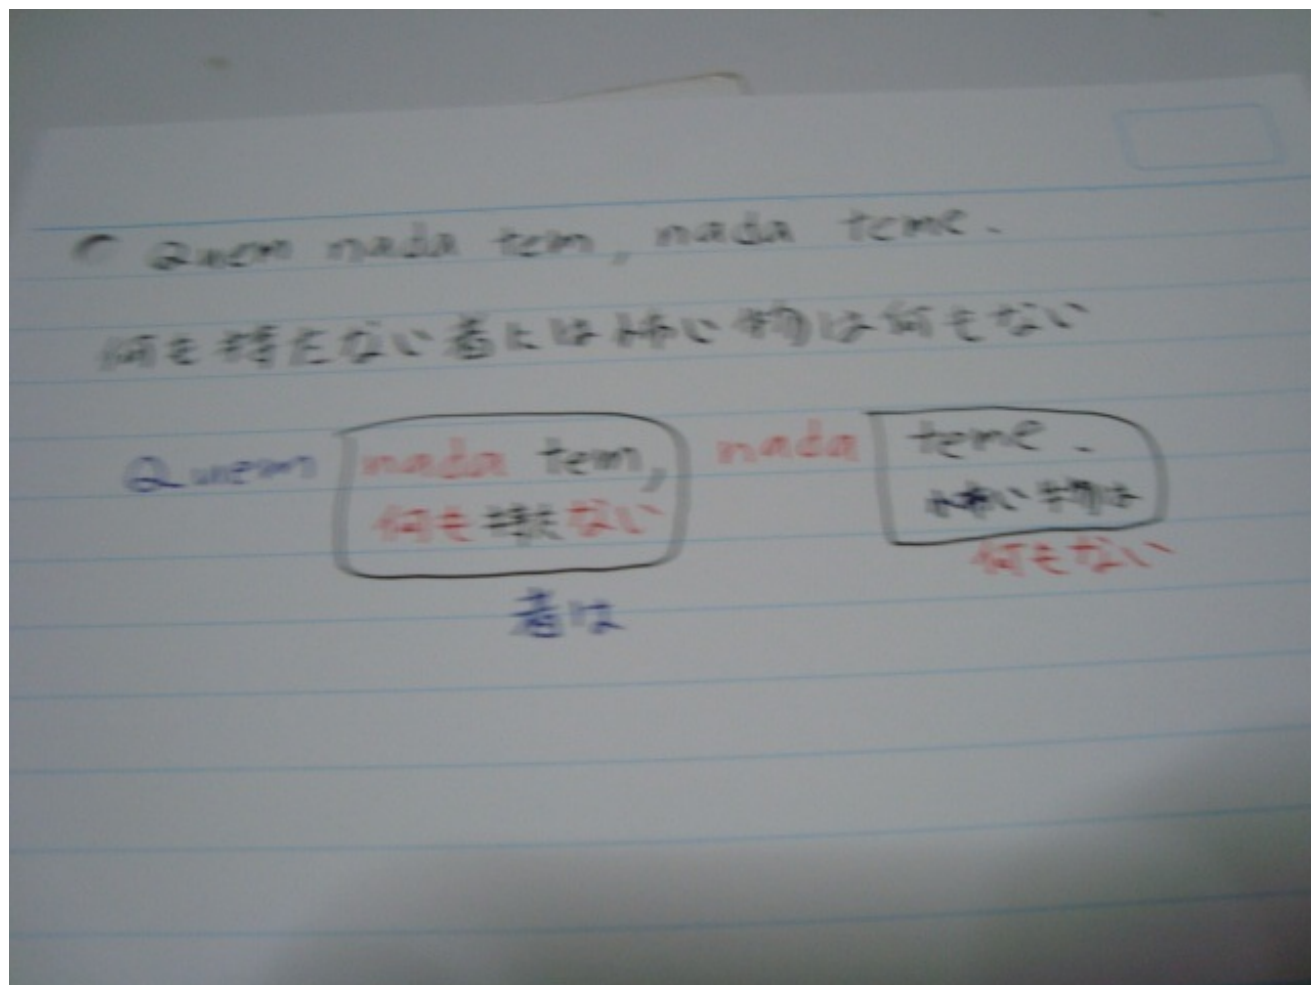 Quem nada tem, nada teme.
何も持たない者には怖い物は何もない
Quem nada tem, nada teme.
何も持たない 怖い物は
何もない
者は